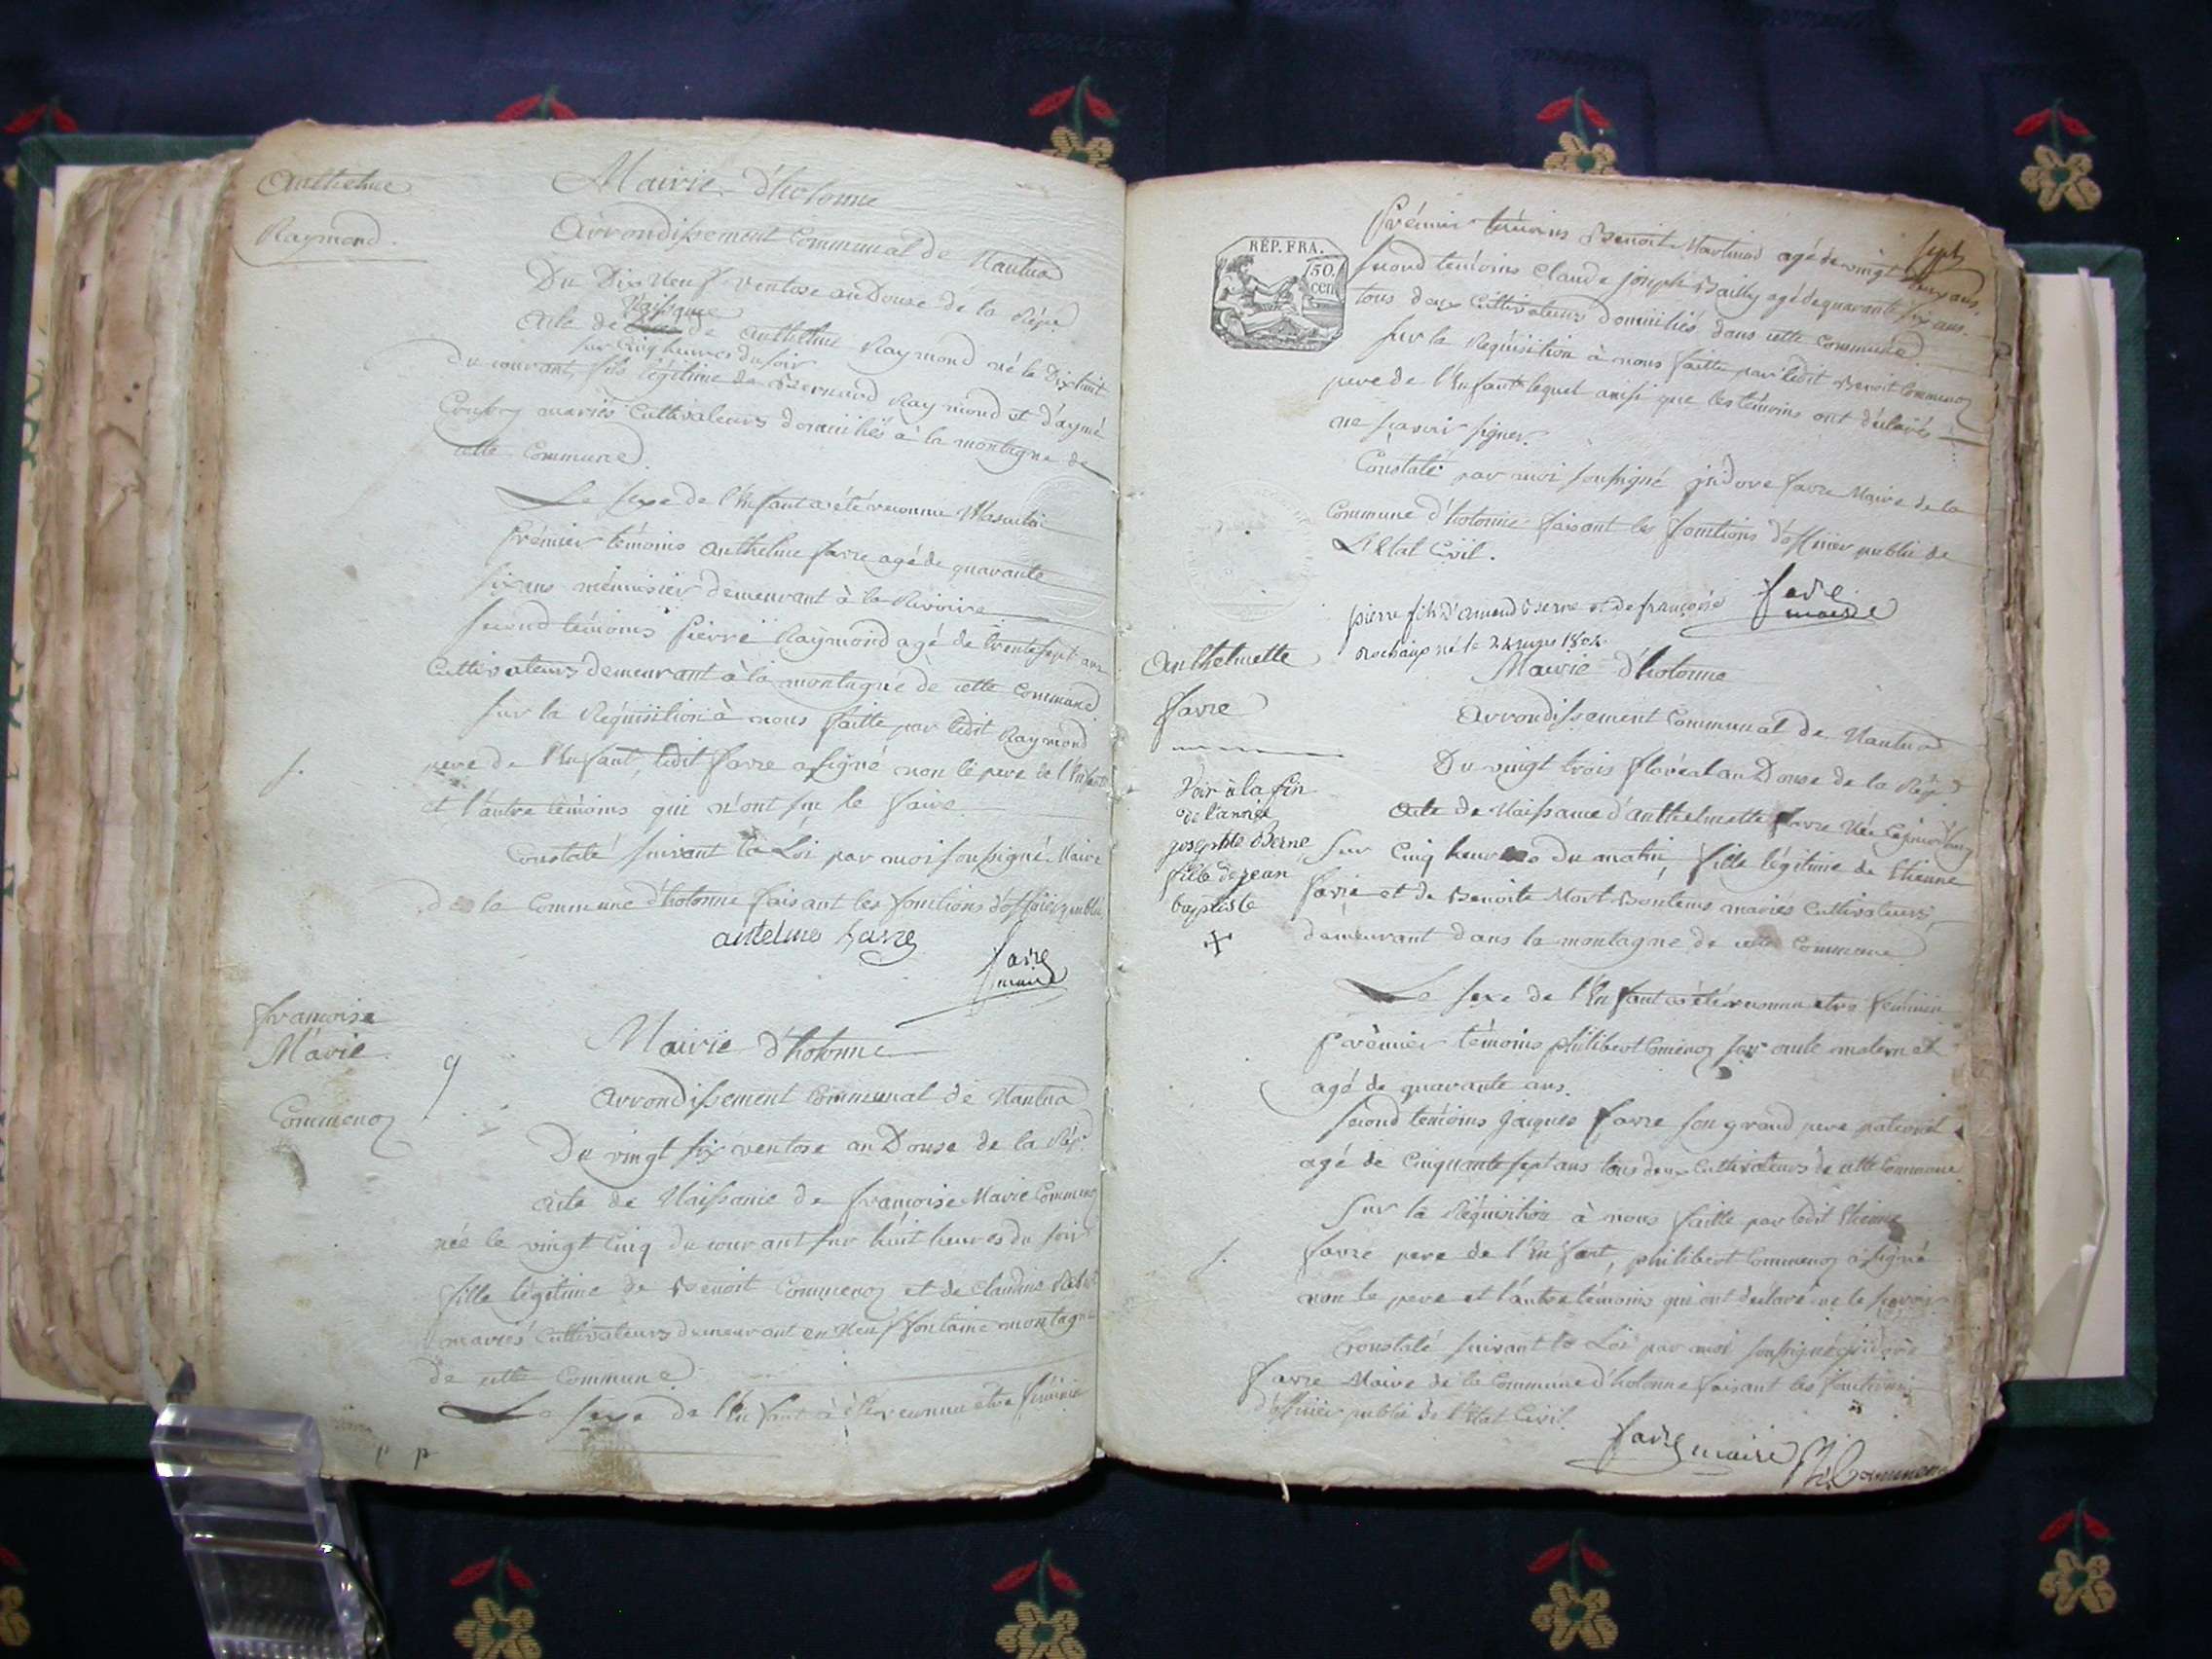 Anthelme
Raymond.
Mairie d'hotonne
Arrondissement Communal de Nantua
Du Dix Neuf ventose an Douse de la Rép.
Naissance
Acte de de Anthelme Raymond né le Dix huit
sur Cinq heures du soir
du courant, fils légitime de Bernard Raymond et d'aymé
mariés Cultivateurs domiciliés à la montagne de
cette Commune
Le sexe de l'Enfant a été reconnu Masculin
Prémier témoins Anthelme favre agé de quarante
six ans ménuisier demeurant à la Rivoire
second témoins Pierre Raymond agé de trente sept ans
Cultivateurs demeurant à la montagne de cette Commune
sur la Réquisition à nous faitte par ledit Raymond
pere de l'Enfant, ledit favre a signé non le pere de l'Enfant
et l'autre témoins qui n'ont su le faire.
Constaté suivant la Loi par moi soussigné Maire
de la Commune d'hotonne faisant les fonctions d'officier public
antelme favre
favre
maire
françoise
Marie
Commenoz
9
Mairie d'hotonne
Arrondissement Communal de Nantua
Du vingt six ventose an Douse de la Rép.
Acte de Naissance de françoise Marie Commenoz
née le vingt Cinq du courant sur huit heures du soir
fille légitime de Benoit Commenoz et de Claudine
mariés Cultivateurs demeurant en Neuf fontaine montagne
de cette Commune
Le sexe de l'Enfant à été reconnu etre féminin
RÉP. FRA.
50.
cen
sept
Prémier témoins Benoit Martinod agé de vingt deux ans.
second témoins Claude joseph Bailly agé de quarante six ans.
tous deux Cultivateurs domiciliés dans cette Commune
sur la Réquisition à nous faitte par ledit Benoit Commenoz
pere de l'Enfant lequel ainsi que les témoins ont déclarés
ne sçavoir signer.
Constaté par moi soussigné jsidore favre Maire de la
Commune d'hotonne faisant les fonctions d'officier public de
L'Etat Civil.
favre
maire
pierre fils d'amend Berne et de françoise
Rochaix né le 24 mars 1804
Anthelmette
favre
Voir à la fin
de l'année
josephte Berne
fille de jean
baptiste
Mairie d'hotonne
Arrondissement Communal de Nantua
Du vingt trois floréal an Douse de la Rép.
Acte de Naissance d'anthelmette favre Née Cejourdhuy
sur Cinq heures du matin, fille légitime de Etienne
favre et de Benoite Mort mariés Cultivateurs,
demeurant dans la montagne de cette Commune
Le sexe de l'Enfant à été reconnu etre féminin
Prémier témoins philibert Comenoz son oncle maternel
agé de quarante ans.
second temoins jaques favre son grand pere paternel
agé de Cinquante sept ans tous deux Cultivateurs de cette Commune
Sur la Réquisition à nous faitte par ledit Etienne
favre pere de l'Enfant, philibert Commenoz à signé
non le pere et l'autre témoins qui ont déclaré ne le sçavoir
Constaté suivant la Loi par moi soussigné jsidore
favre Maire de la Commune d'hotonne faisant les fonctions
d'officier public de l'Etat Civil.
favre maire Commenoz